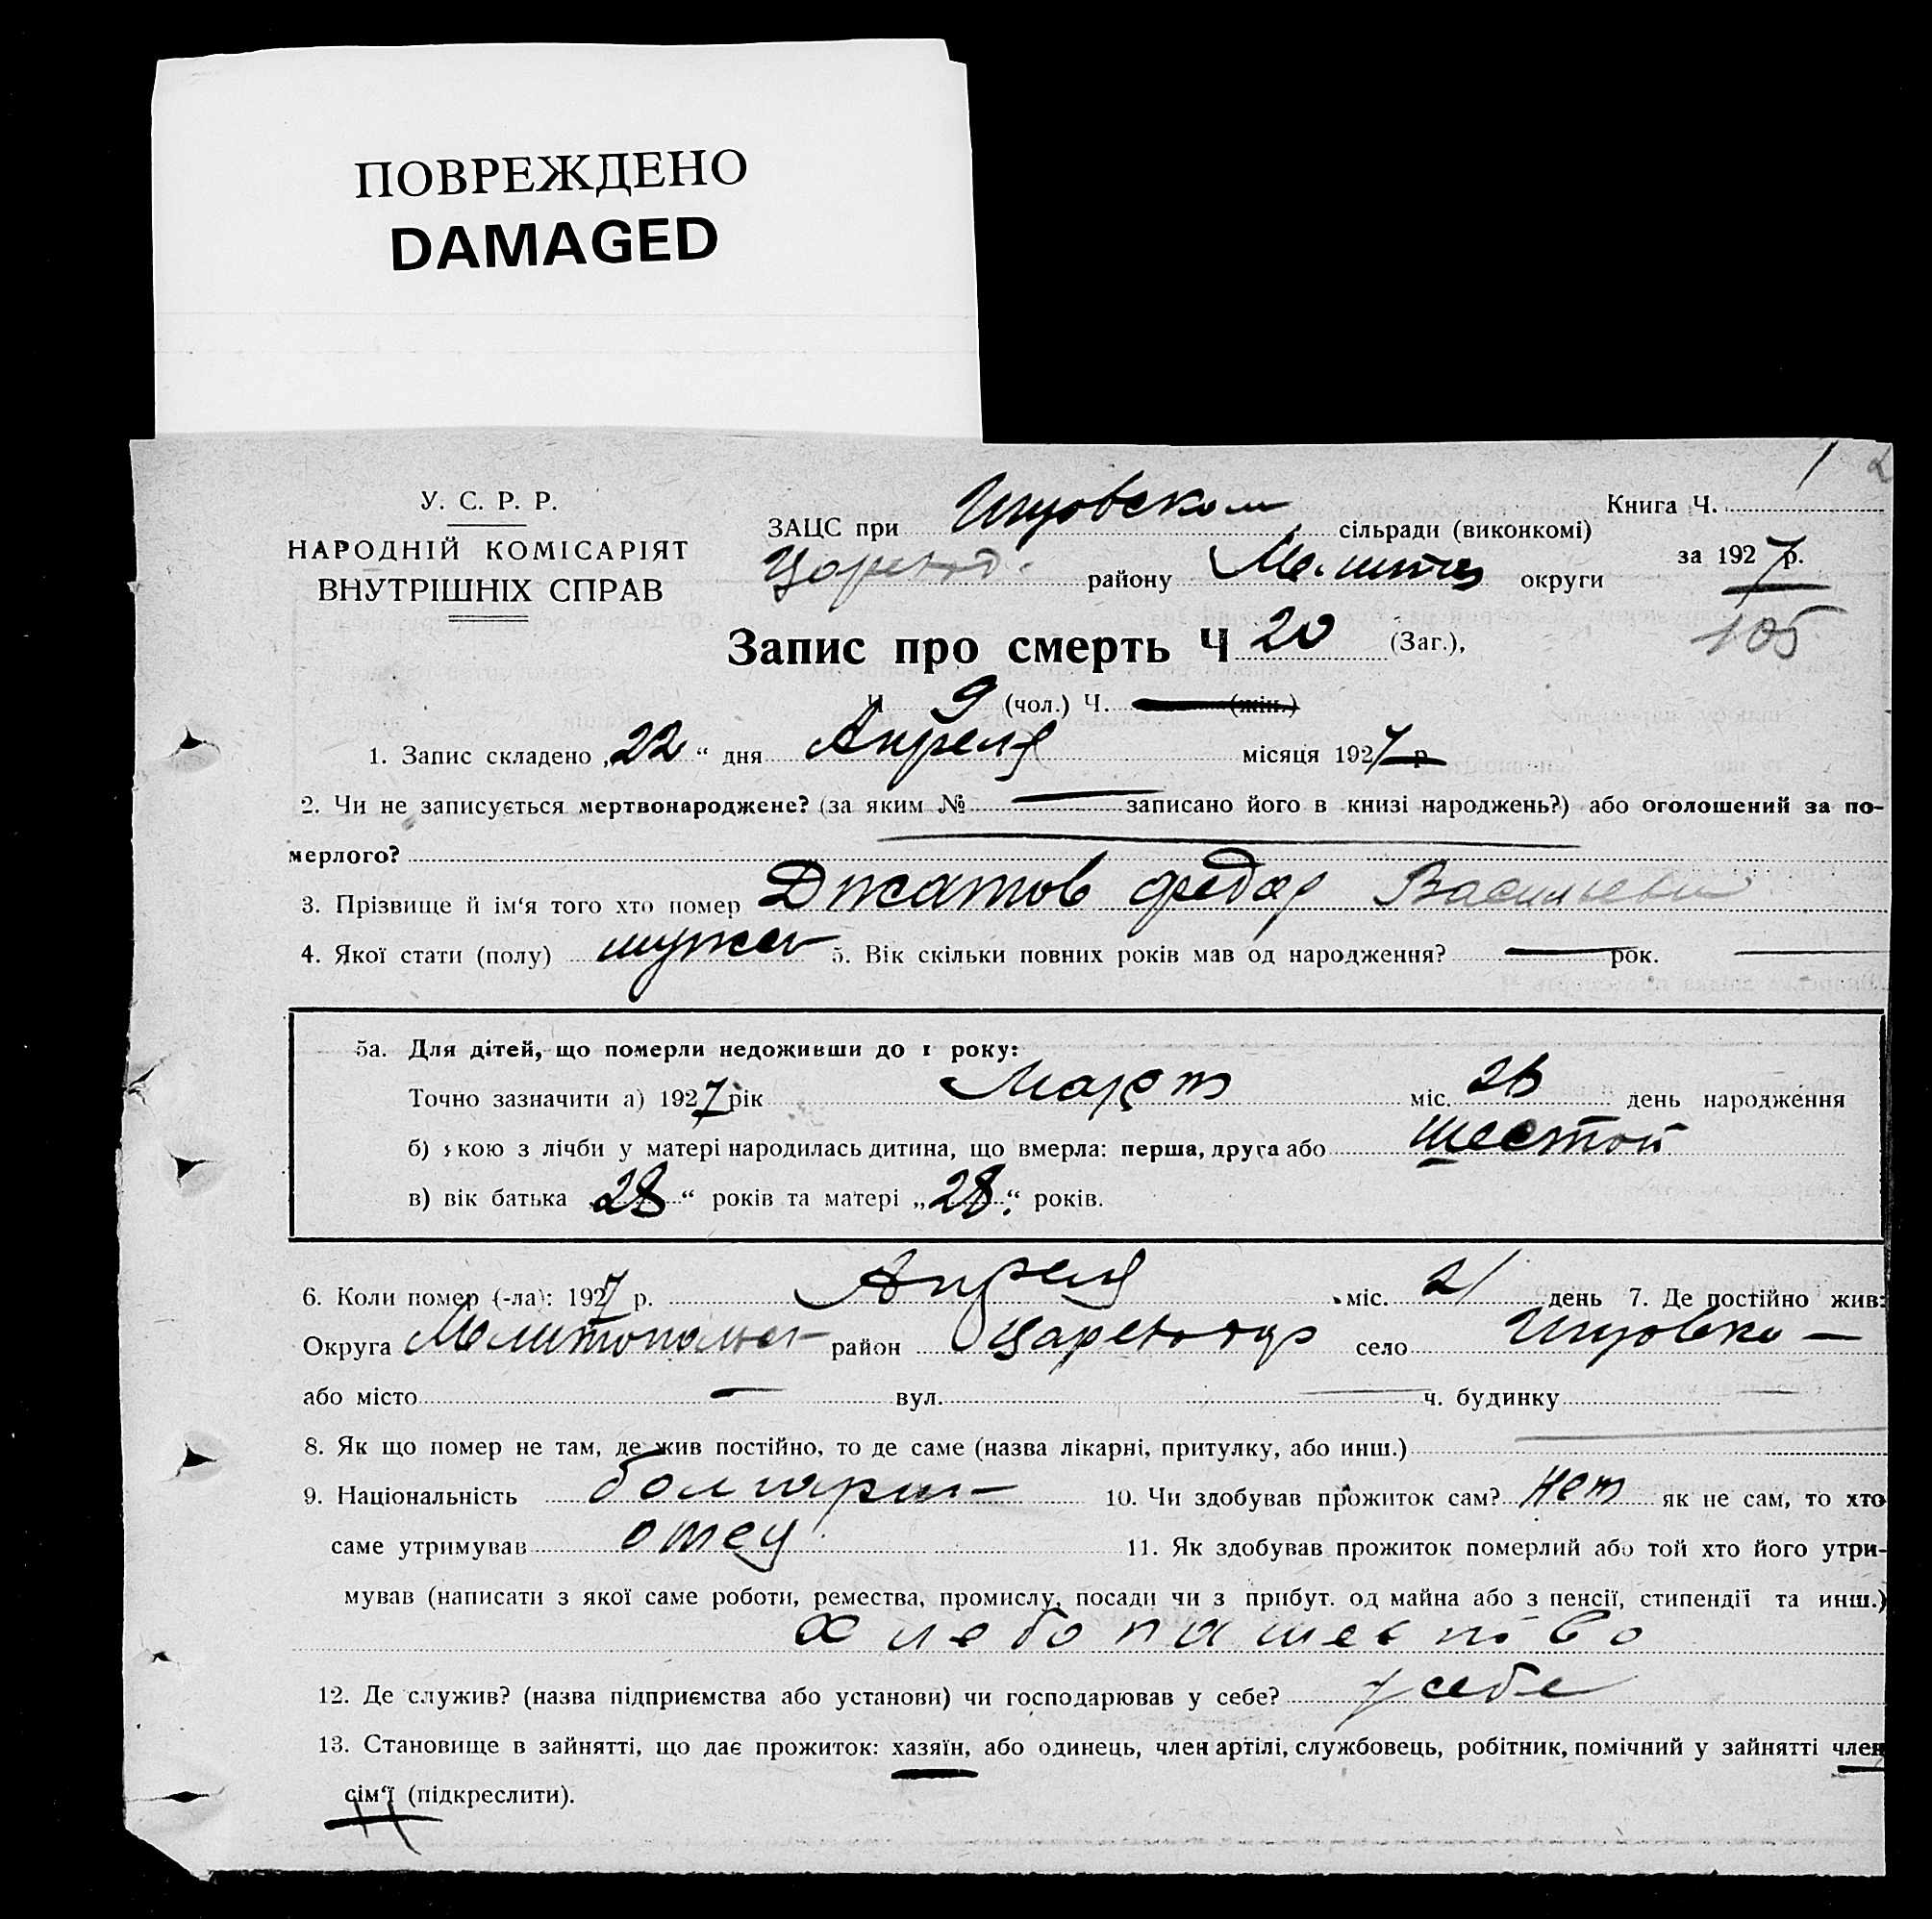 ПОВРЕЖДЕНО
DAMAGED
1 2
У. С. Р. Р.
НАРОДНІЙ КОМІСАРІЯТ
ВНУТРІШНІХ СПРАВ
ЗАЦС при сільради (виконкомі)
району округи
Книга Ч.
за 1927 р.
105
Запис про смерть Ч 20 (Заг.),
Ч 9 (чол.) Ч. (жін.)
1. Запис складено „22“ дня Апреля місяця 1927 р
2. Чи не записується мертвонароджене? (за яким № — записано його в книзі народжень?) або оголошений за по-
мерлого?
3. Прізвище й ім‘я того хто помер Джатов Федор Васильеви
4. Якої стати (полу) мужск 5. Вік скільки повних років мав од народження? — рок. —
5а. Для дітей, що померли недоживши до 1 року:
Точно зазначити а) 1927 рік Март міс. 26 день народження
б) якою з лічби у матері народилась дитина, що вмерла: перша, друга або шестой
в) вік батька 28“ років та матері „28“ років.
6. Коли помер (-ла): 1927 р. Апреля міс. 21 день 7. Де постійно жив:
Округа Мелитопольск район село
або місто — вул. — ч. будинку
8. Як що помер не там, де жив постійно, то де саме (назва лікарні, притулку, або инш.)
9. Національність болгарин 10. Чи здобував прожиток сам? Нет як не сам, то хто
саме утримував отец 11. Як здобував прожиток померлий або той хто його утри-
мував (написати з якої саме роботи, ремества, промислу, посади чи з прибут. од майна або з пенсії, стипендії та инш.)
Хлебопашество
12. Де служив? (назва підприємства або установи) чи господарював у себе? у себе
13. Становище в зайнятті, що дає прожиток: хазяїн, або одинець, член артілі, службовець, робітник, помічний у зайнятті член
сім‘ї (підкреслити).